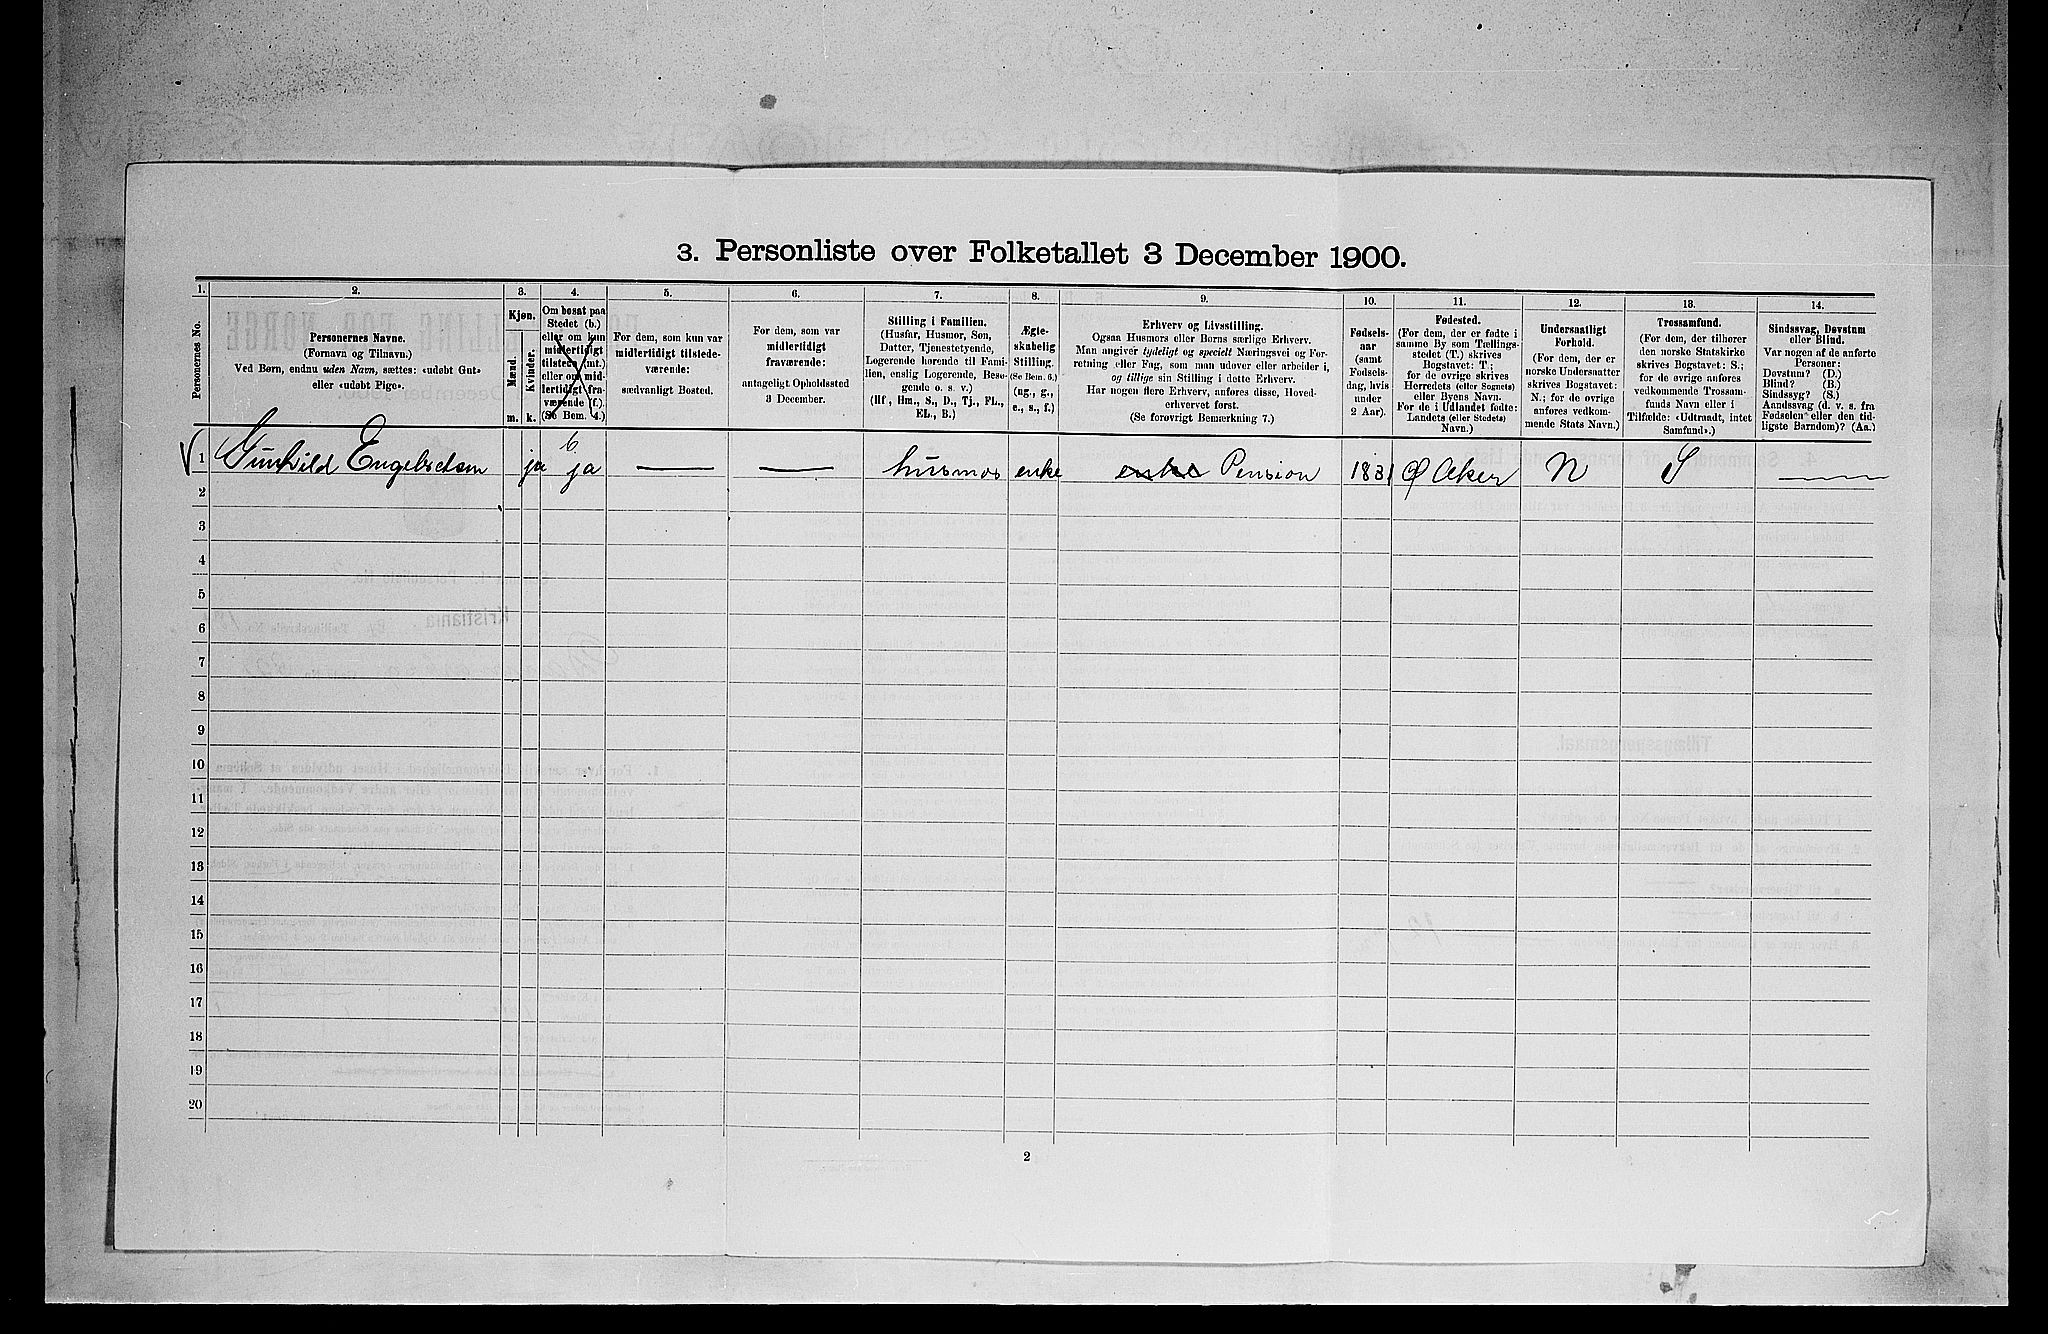 3. Personliste over Folketallet 3 December 1900.
1.
2.
3.
4.
5.
6.
7.
8.
9.
10.
11.
12.
13.
14.
Personernes No.
Personernes Navne.
(Fornavn og Tilnavn.)
Ved Børn, endnu uden Navn, sættes: «udøbt Gut»
eller «udøbt Pige».
Kjøn.
Mænd.
Kvinder.
m.
k.
Om bosat paa
Stedet (b.)
eller om kun
midlertidigt
tilstede (mt.)
eller om mid-
lertidigt fra-
værende (f.).
(Se Bem. 4.)
For dem, som kun var
midlertidigt tilstede-
værende:
sædvanligt Bosted.
For dem, som var
midlertidigt
fraværende:
antageligt Opholdssted
3 December.
Stilling i Familien.
(Husfar, Husmor, Søn,
Datter, Tjenestetyende,
Logerende hørende til Fami-
lien, enslig Logerende, Besø-
gende o. s. v.)
(Hf, Hm., S., D., Tj., FL.,
EL., B.)
Ægte-
skabelig
Stilling.
(Se Bem. 6.)
(ug., g.,
e., s., f.)
Erhverv og Livsstilling.
Ogsaa Husmors eller Børns særlige Erhverv.
Man angiver tydeligt og specielt Næringsvei og For-
retning eller Fag, som man udøver eller arbeider i,
og tillige sin Stilling i dette Erhverv.
Har nogen flere Erhverv, anføres disse, Hoved-
erhvervet først.
(Se forøvrigt Bemærkning 7.)
Fødsels-
aar
(samt
Fødsels-
dag, hvis
under
2 Aar).
Fødested.
(For dem, der er fødte i
samme By som Tællings-
stedet (T.) skrives
Bogstavet: T.;
for de øvrige skrives
Herredets (eller Sognets)
eller Byens Navn.
For de i Udlandet fødte:
Landets (eller Stedets)
Navn.)
Undersaatligt
Forhold.
(For dem, der er
norske Undersaatter
skrives Bogstavet:
N.; for de øvrige
anføres vedkom-
mende Stats Navn.)
Trossamfund.
(For dem, der tilhører
den norske Statskirke
skrives Bogstavet: S.;
for de øvrige anføres
vedkommende Trossam-
funds Navn eller i
Tilfælde: «Udtraadt, intet
Samfund».)
Sindssvag, Døvstum
eller Blind.
Var nogen af de anførte
Personer:
Døvstum? (D.)
Blind? (B.)
Sindssyg? (S.)
Aandssvag (d. v. s. fra
Fødselen eller den tid-
ligste Barndom)? (Aa.)
b.
1 Gunhild Engebretsen ja ja — — husmor enke enke Pension 1831 Ø Aker N S —
2
3
4
5
6
7
8
9
10
11
12
13
14
15
16
17
18
19
20
2